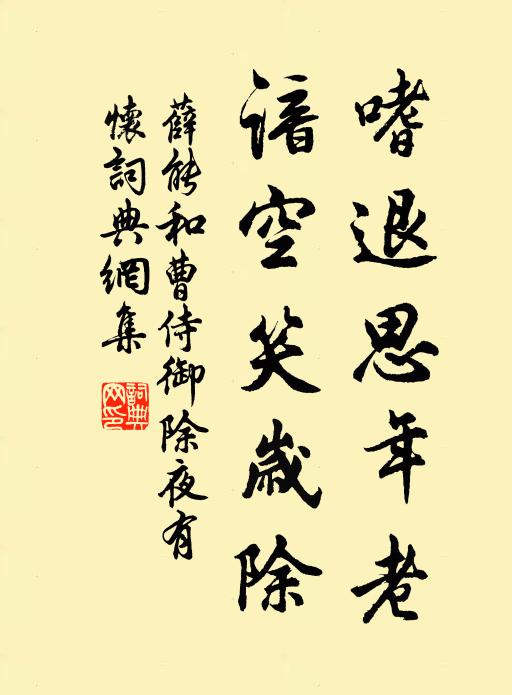 嗜退思年老
諳空笑歲除
薛能和曹侍御除夜有
懷詞典網集
詞典
网印